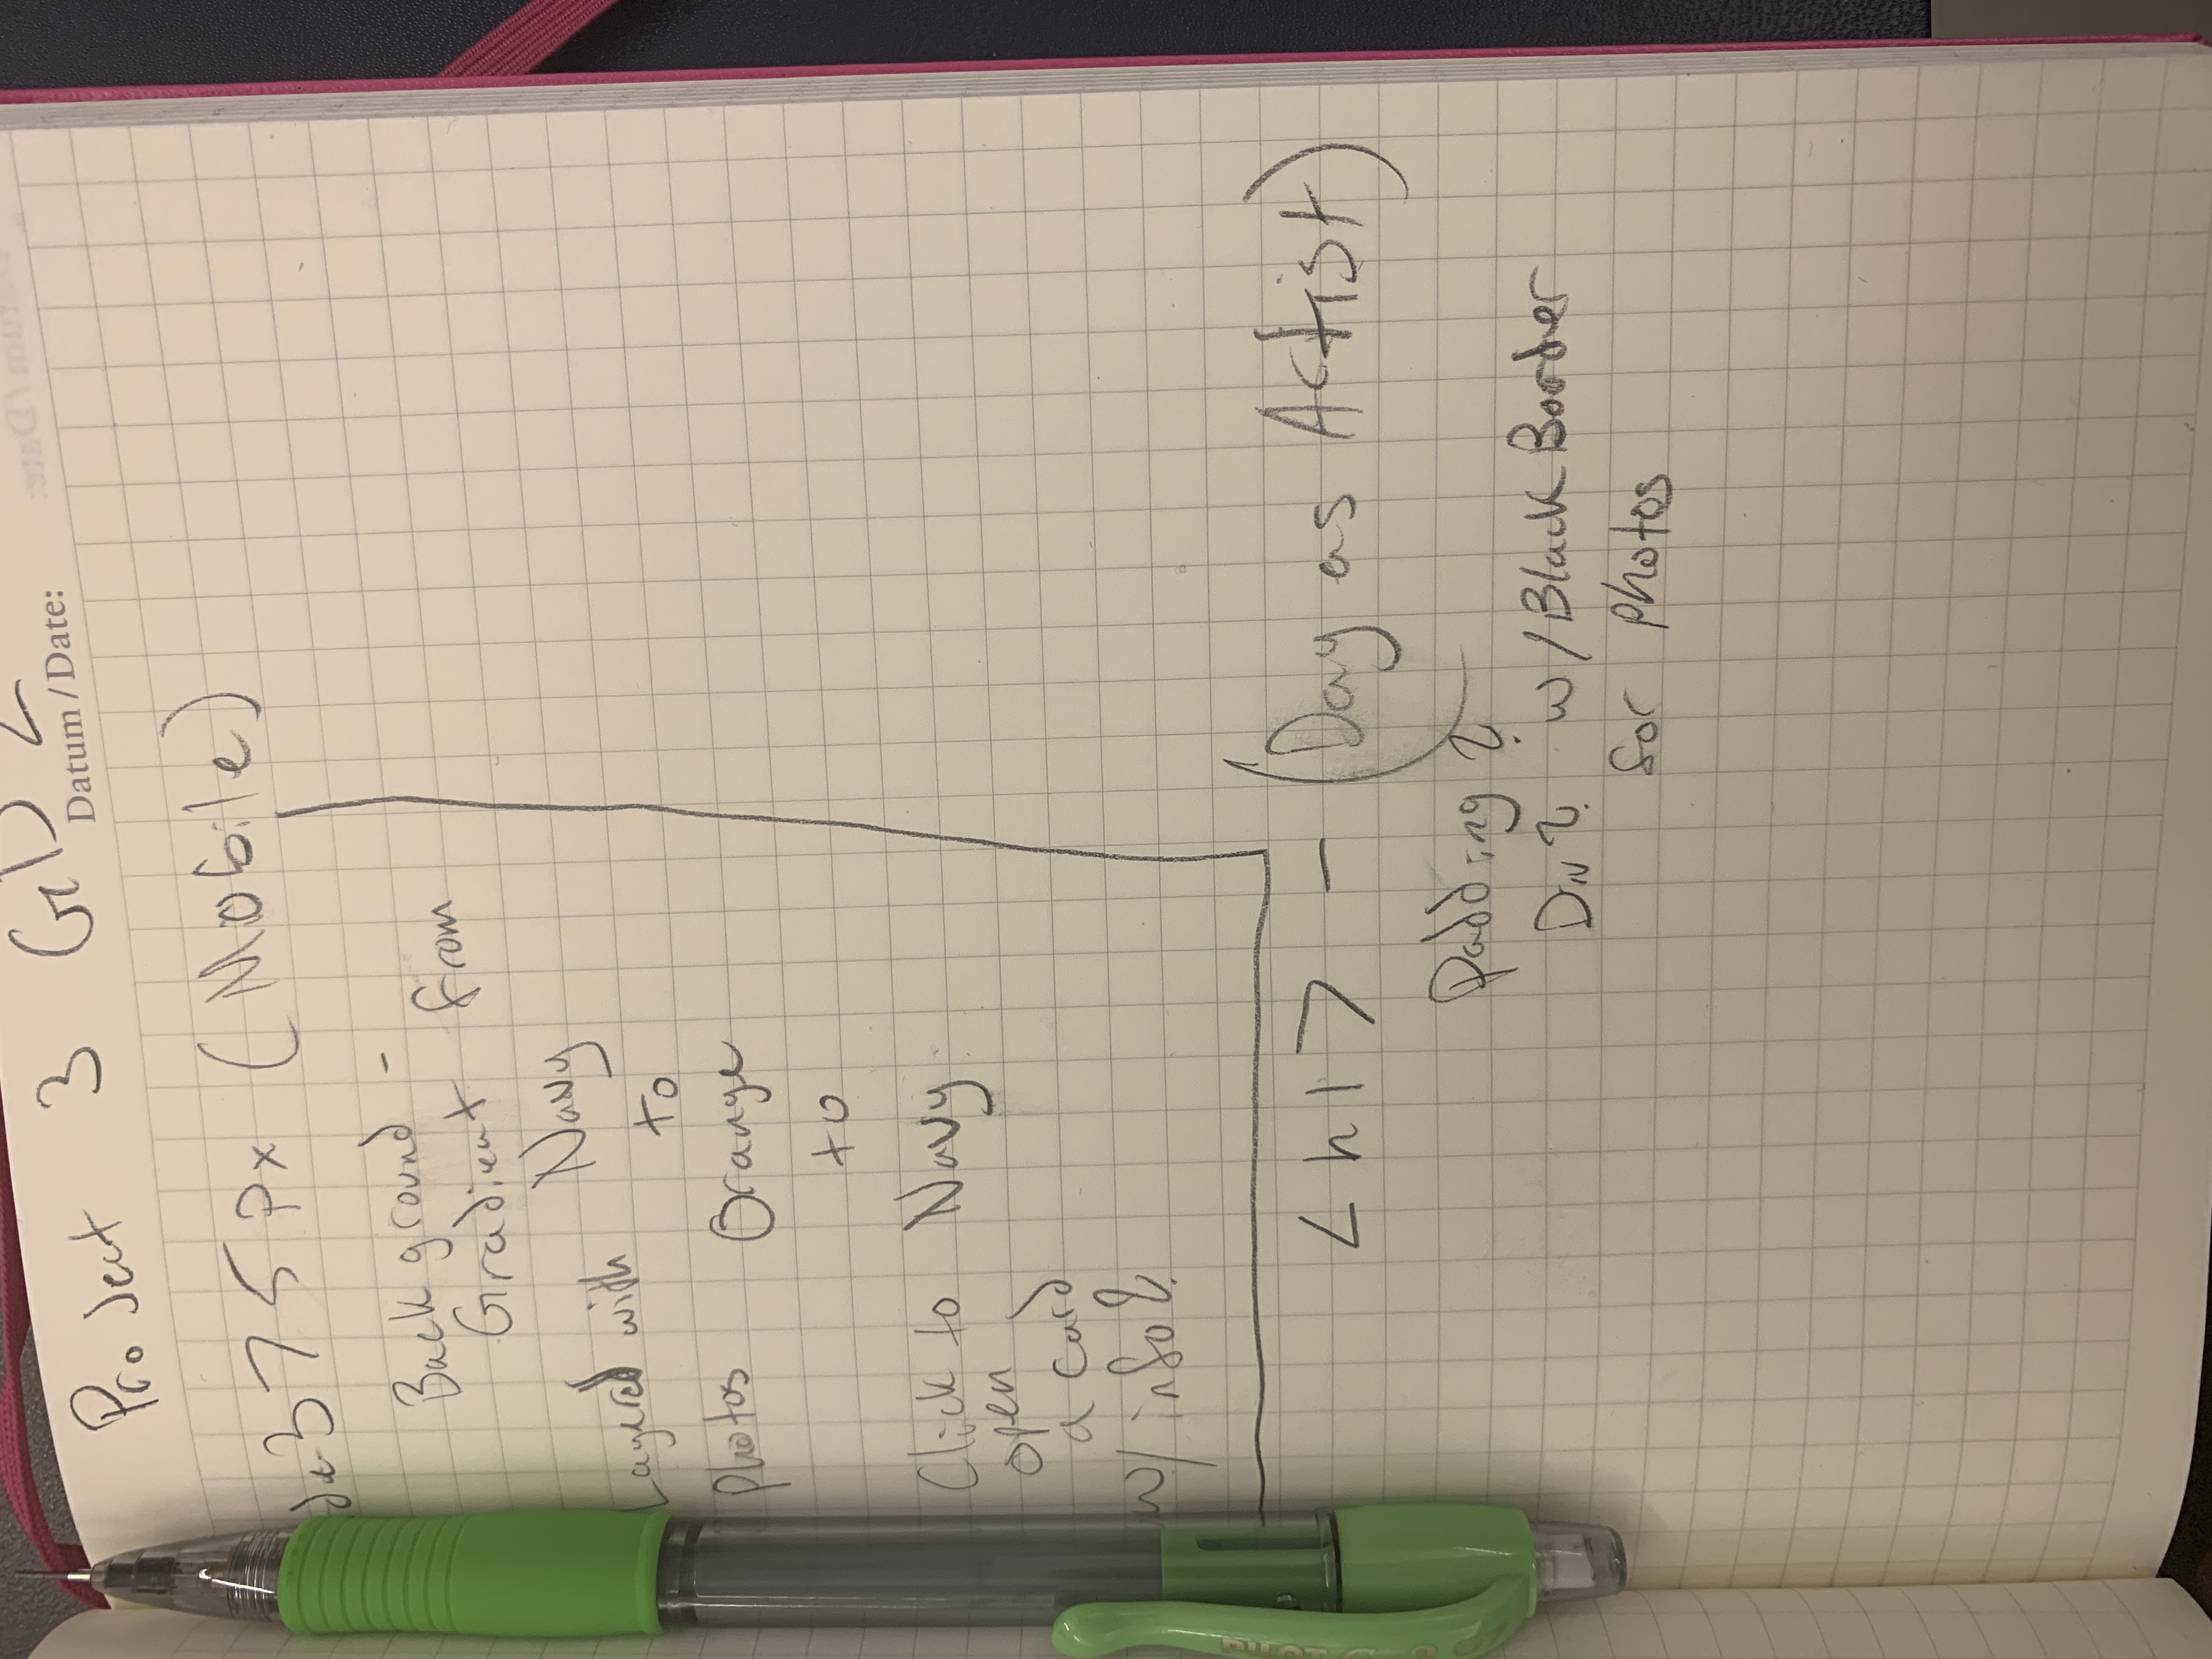 Project 3 GD 2
Datum / Date:
375 Px (Mobile)
Background -
Gradient from
Navy
Layered with
to
Photos
Orange
to
Click to
Navy
open
a card
w/ info?
<h1> - (Day as Artist)
Padding?
Div? w/ Black Boorder
for photos